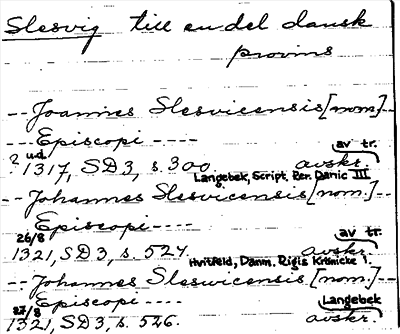 Slesvig till en del dansk
provins
--Joannes Slesvicensis [nom.]--
---Episcopi----
av tr.
? ud. 1317, SD3, s. 300 avskr.
Langebek, Script. Rer. Danic III
--Johannes Slesvicensis [nom.]--
Episcopi----
26/8 av tr.
1321, SD3, s. 527. avskr.
Hvitfeld, Danm. Rigis Krønicke 1.
--Johannes Sleswicensis [nom.]--
Episcopi---- Langebek
27/8 1321, SD3, s. 526. avskr.